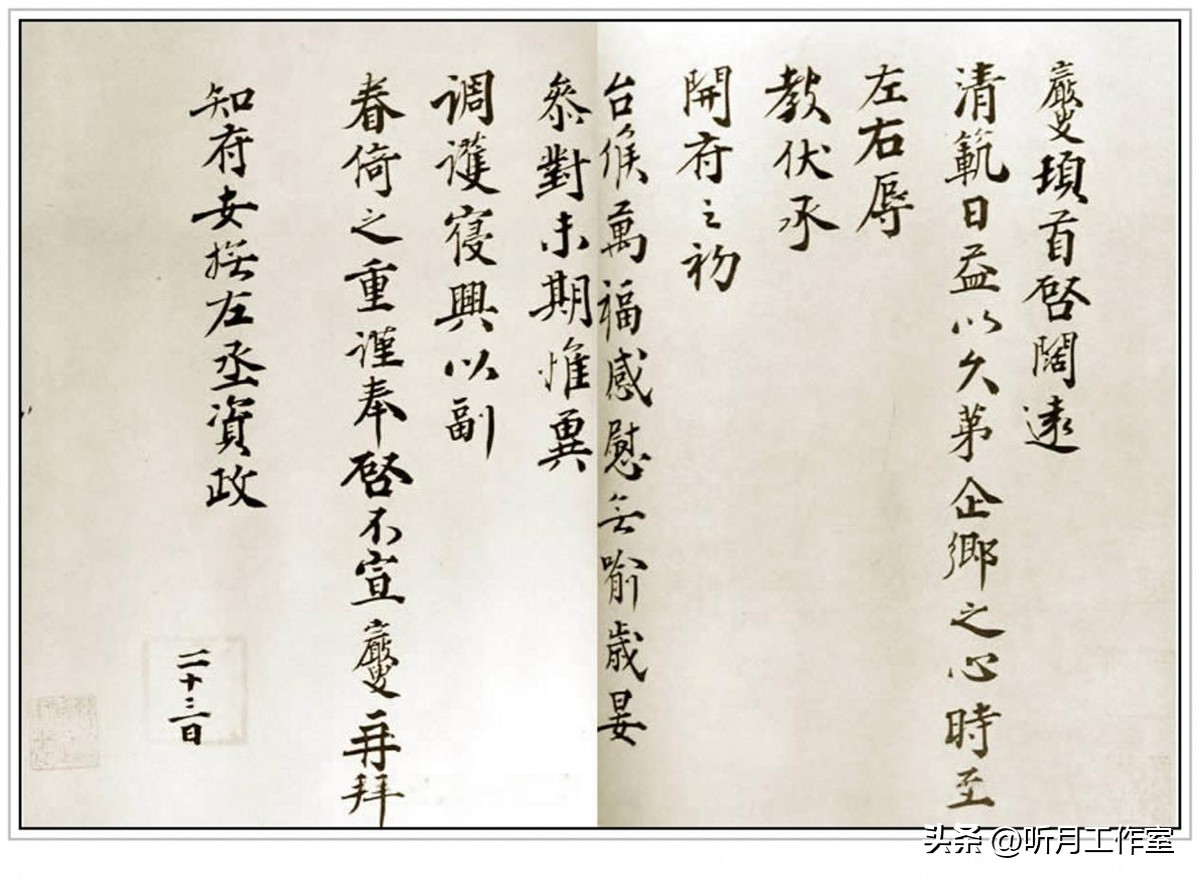 巖叟頓首啓闊遠
清範日益以久第企鄉之心時至
左右辱
教伏承
開府之初
台候萬福感慰無喻歲晏
叅對未期惟冀
調護寢興以副
眷倚之重謹奉啓不宣巖叟再拜
知府安撫左丞資政
二十三日
头条 @听月工作室